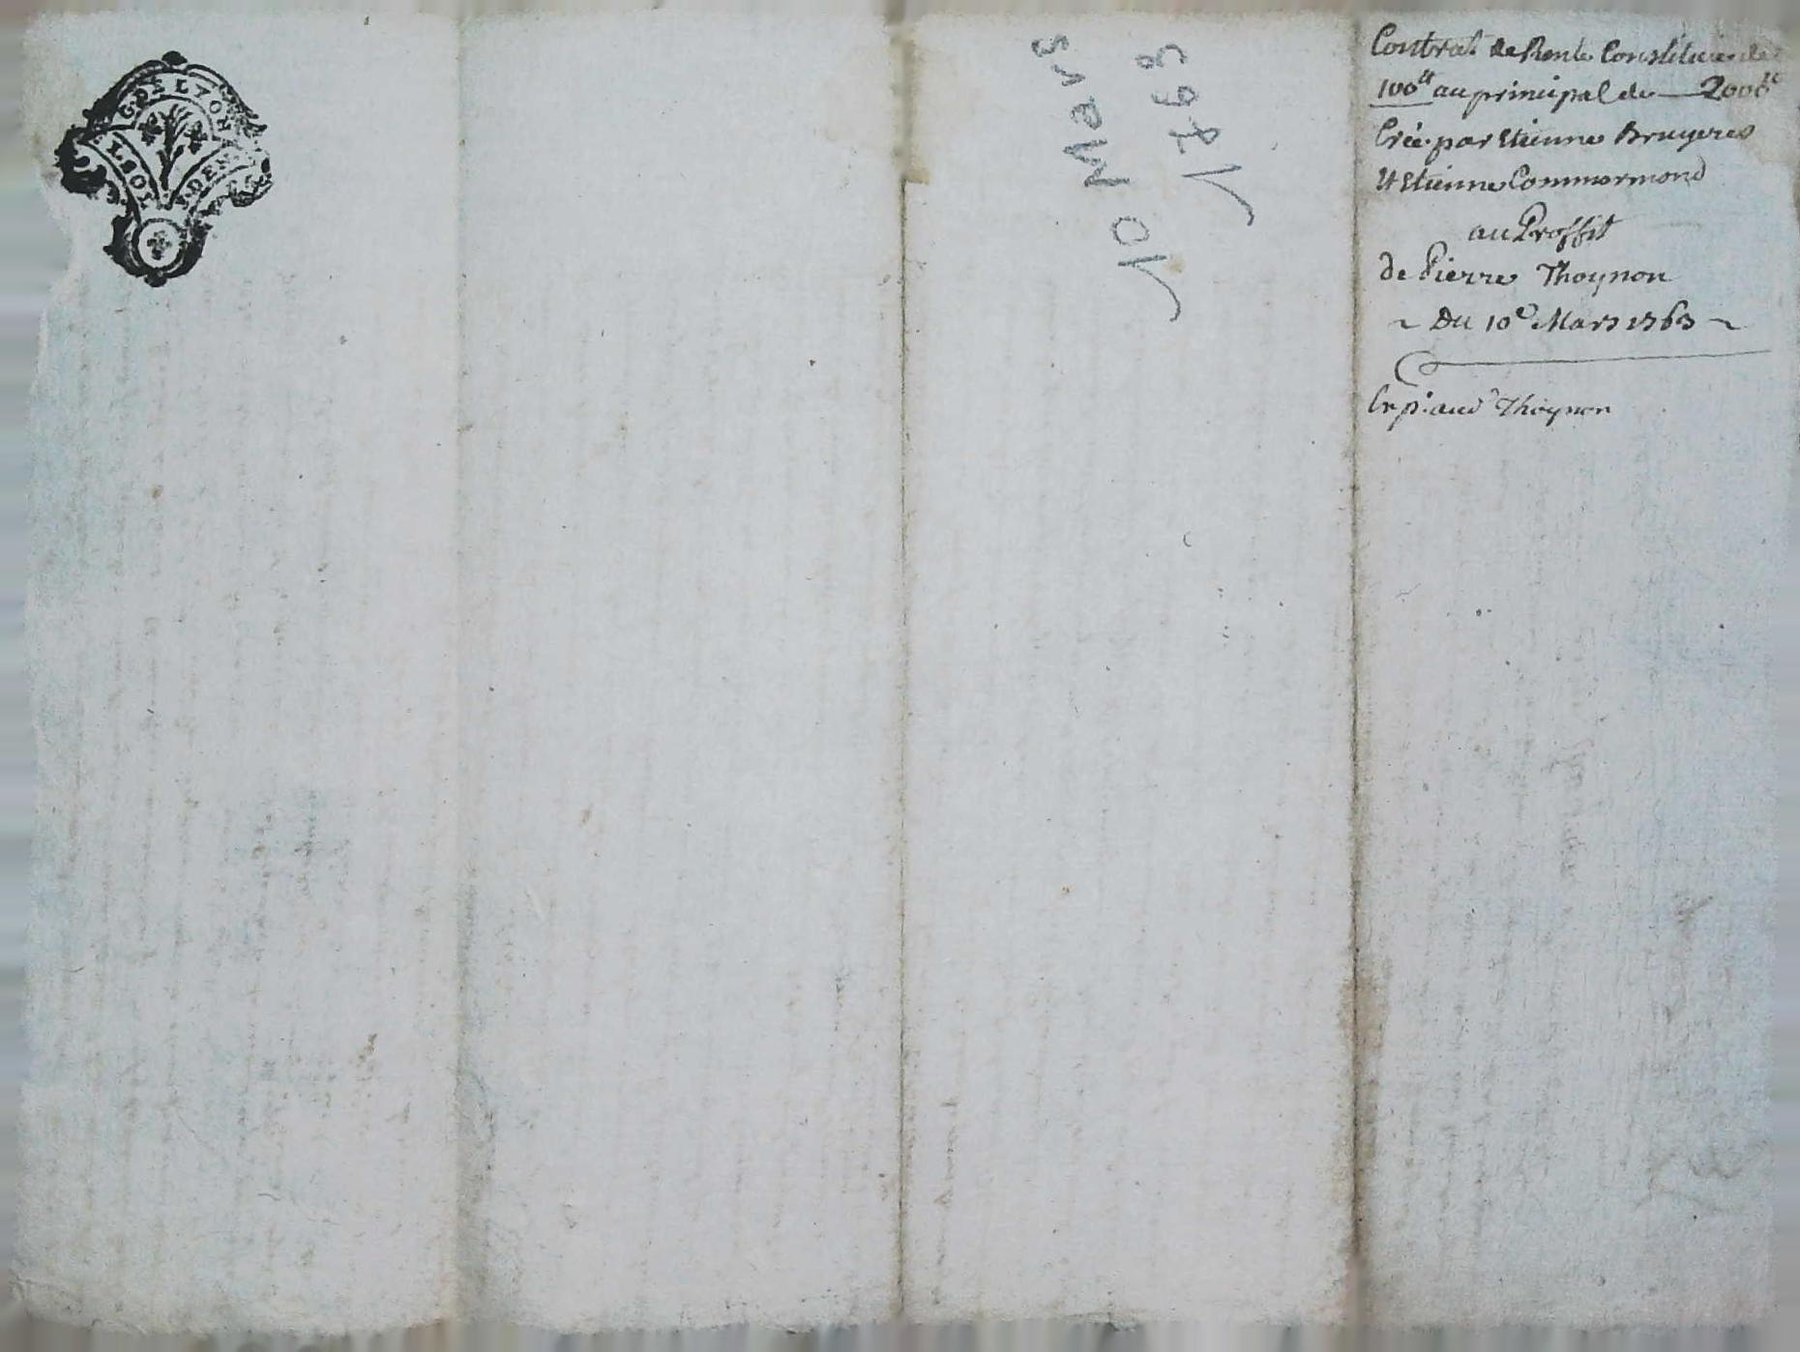 G. DE LYON
2. SOLS
4. DEN.
10 Mars
1763
Contrat de Rente Constituée de
100 tt au principal de — 2000 tt
Créé par Etienne Bruyeres
Et Etienne Commarmond
au Proffit
de Pierre Thoynon
~ Du 10e Mars 1763 ~
Thoynon